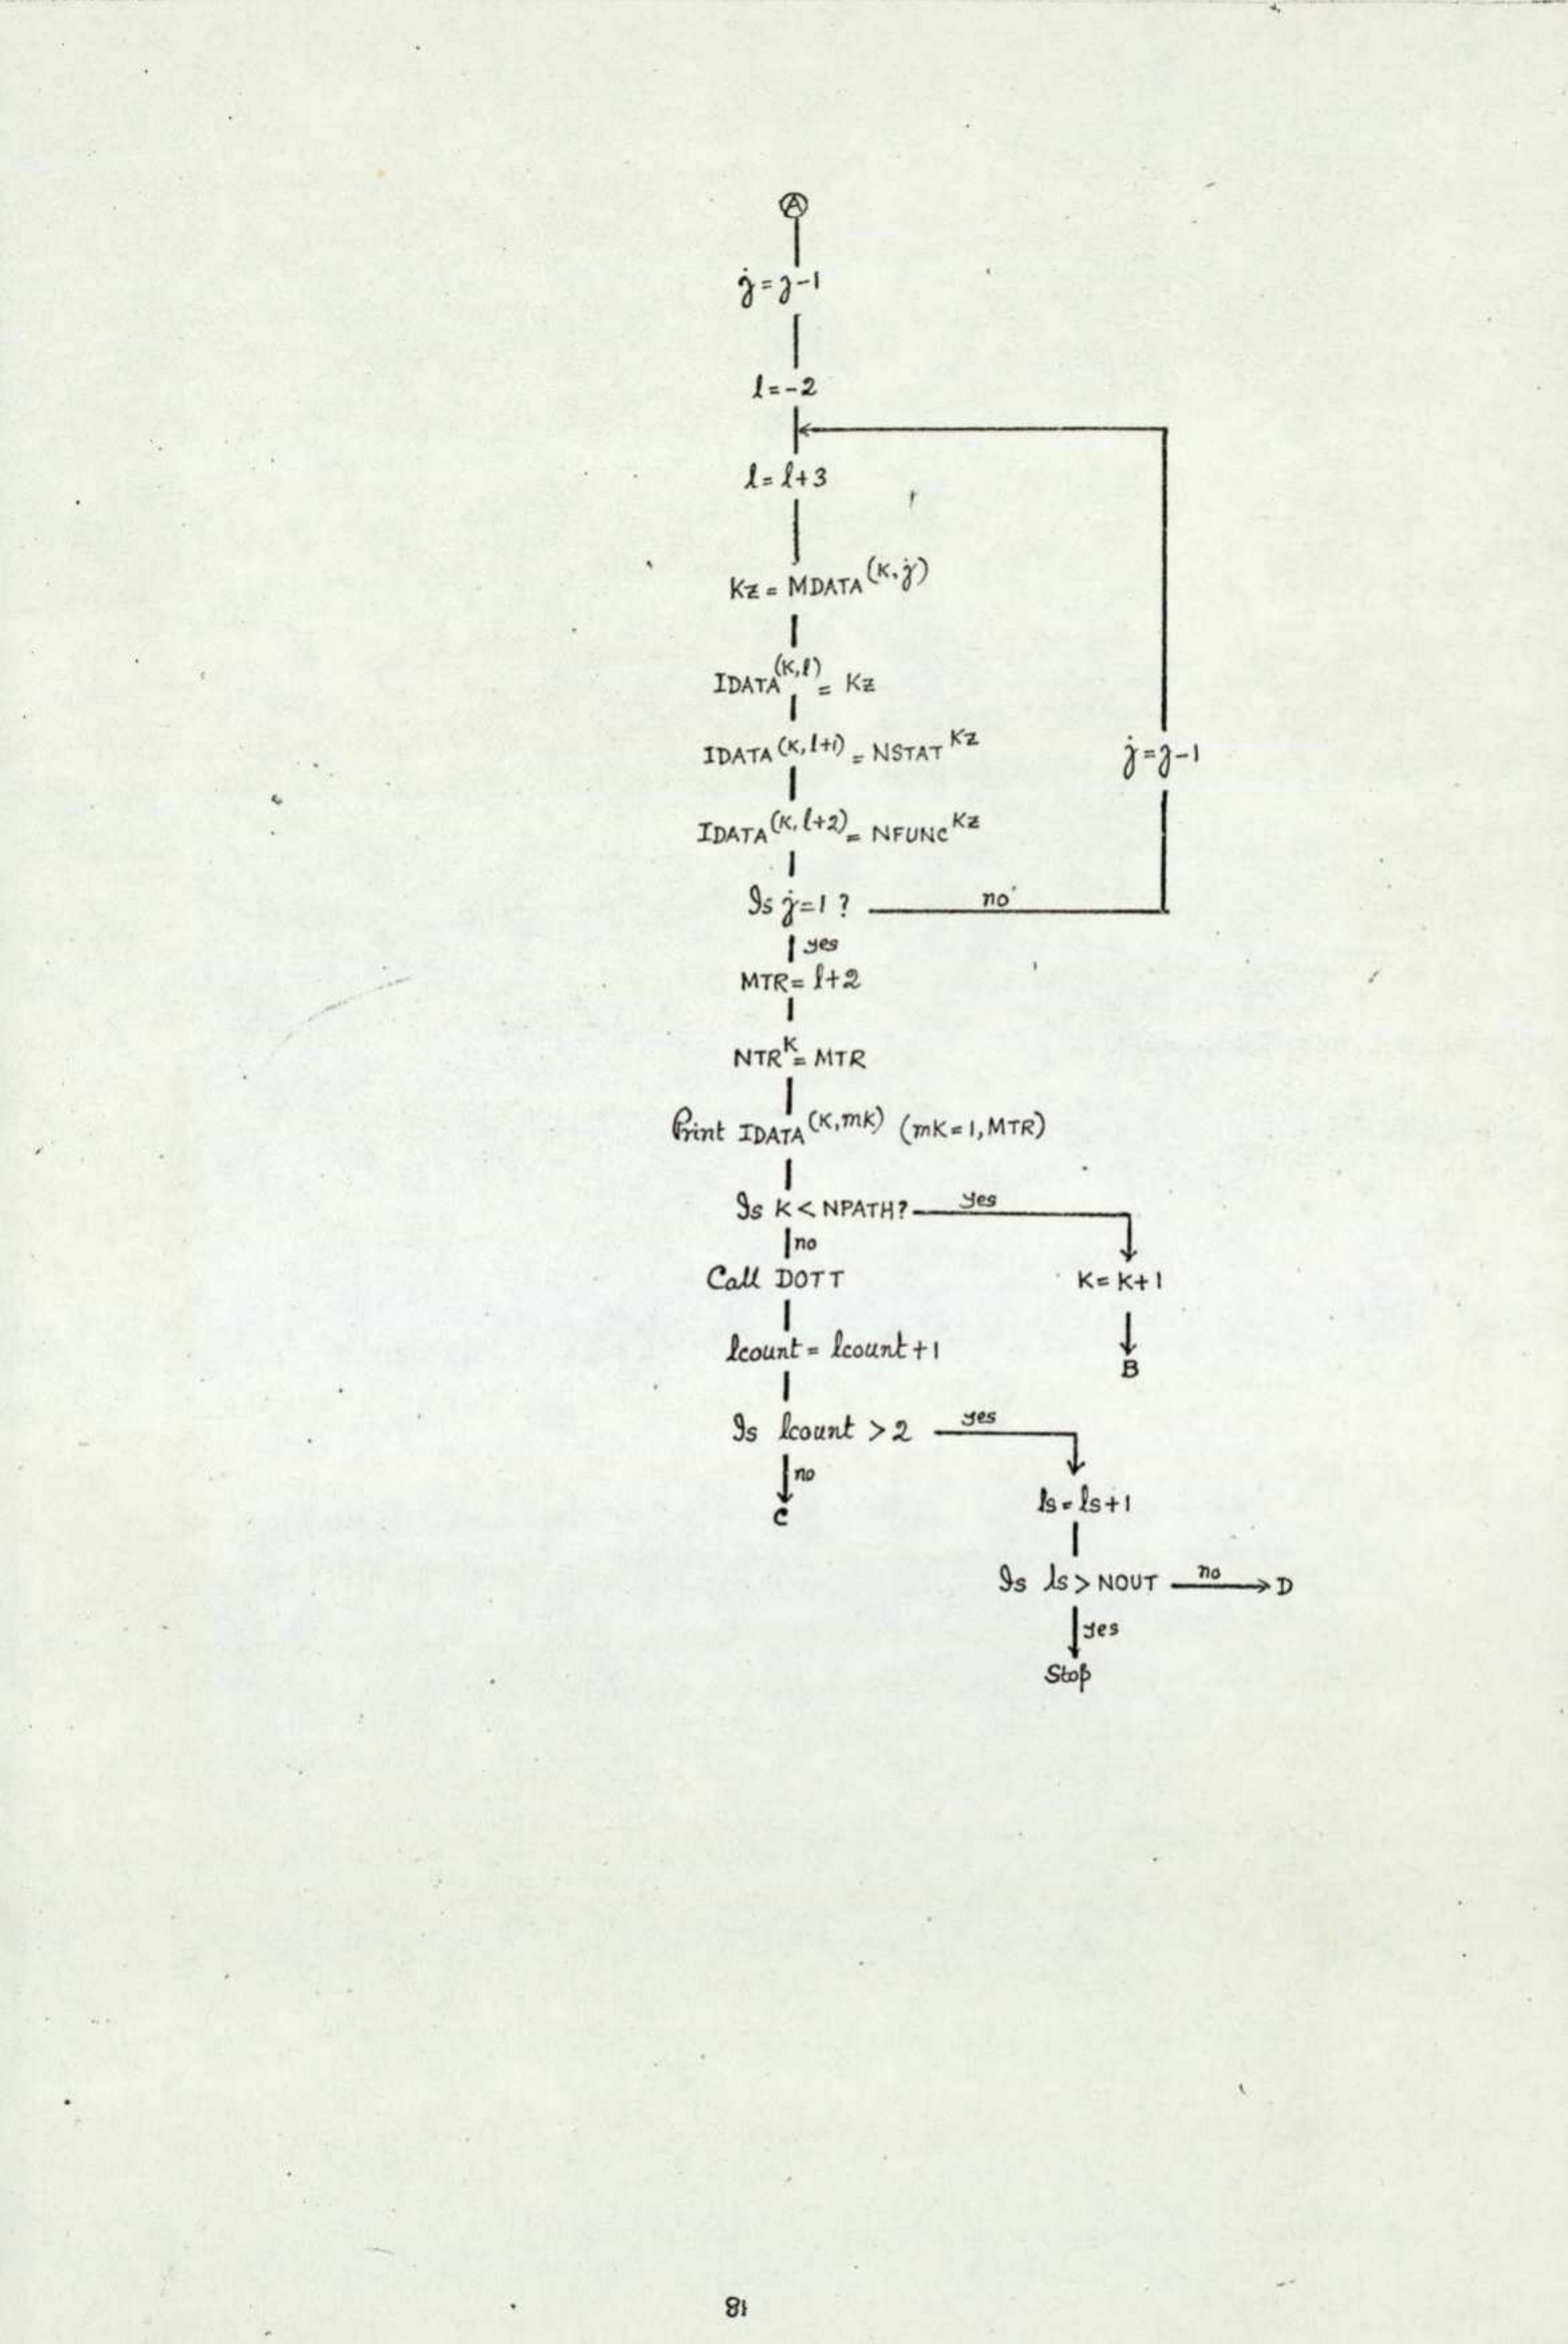 A
j = j-1
l = -2
l = l+3
Kz = MDATA(K,j)
IDATA(K,l) = Kz
IDATA(K,l+1) = NSTAT Kz
j = j-1
IDATA(K,l+2) = NFUNC Kz
Is j=1 ? no
yes
MTR = l+2
NTR K = MTR
Print IDATA(K,mK) (mK=1,MTR)
Is K < NPATH? yes
no
Call DOTT K = K+1
lcount = lcount+1
B
Is lcount > 2 yes
no
C
ls = ls+1
Is ls > NOUT no D
yes
Stop
81